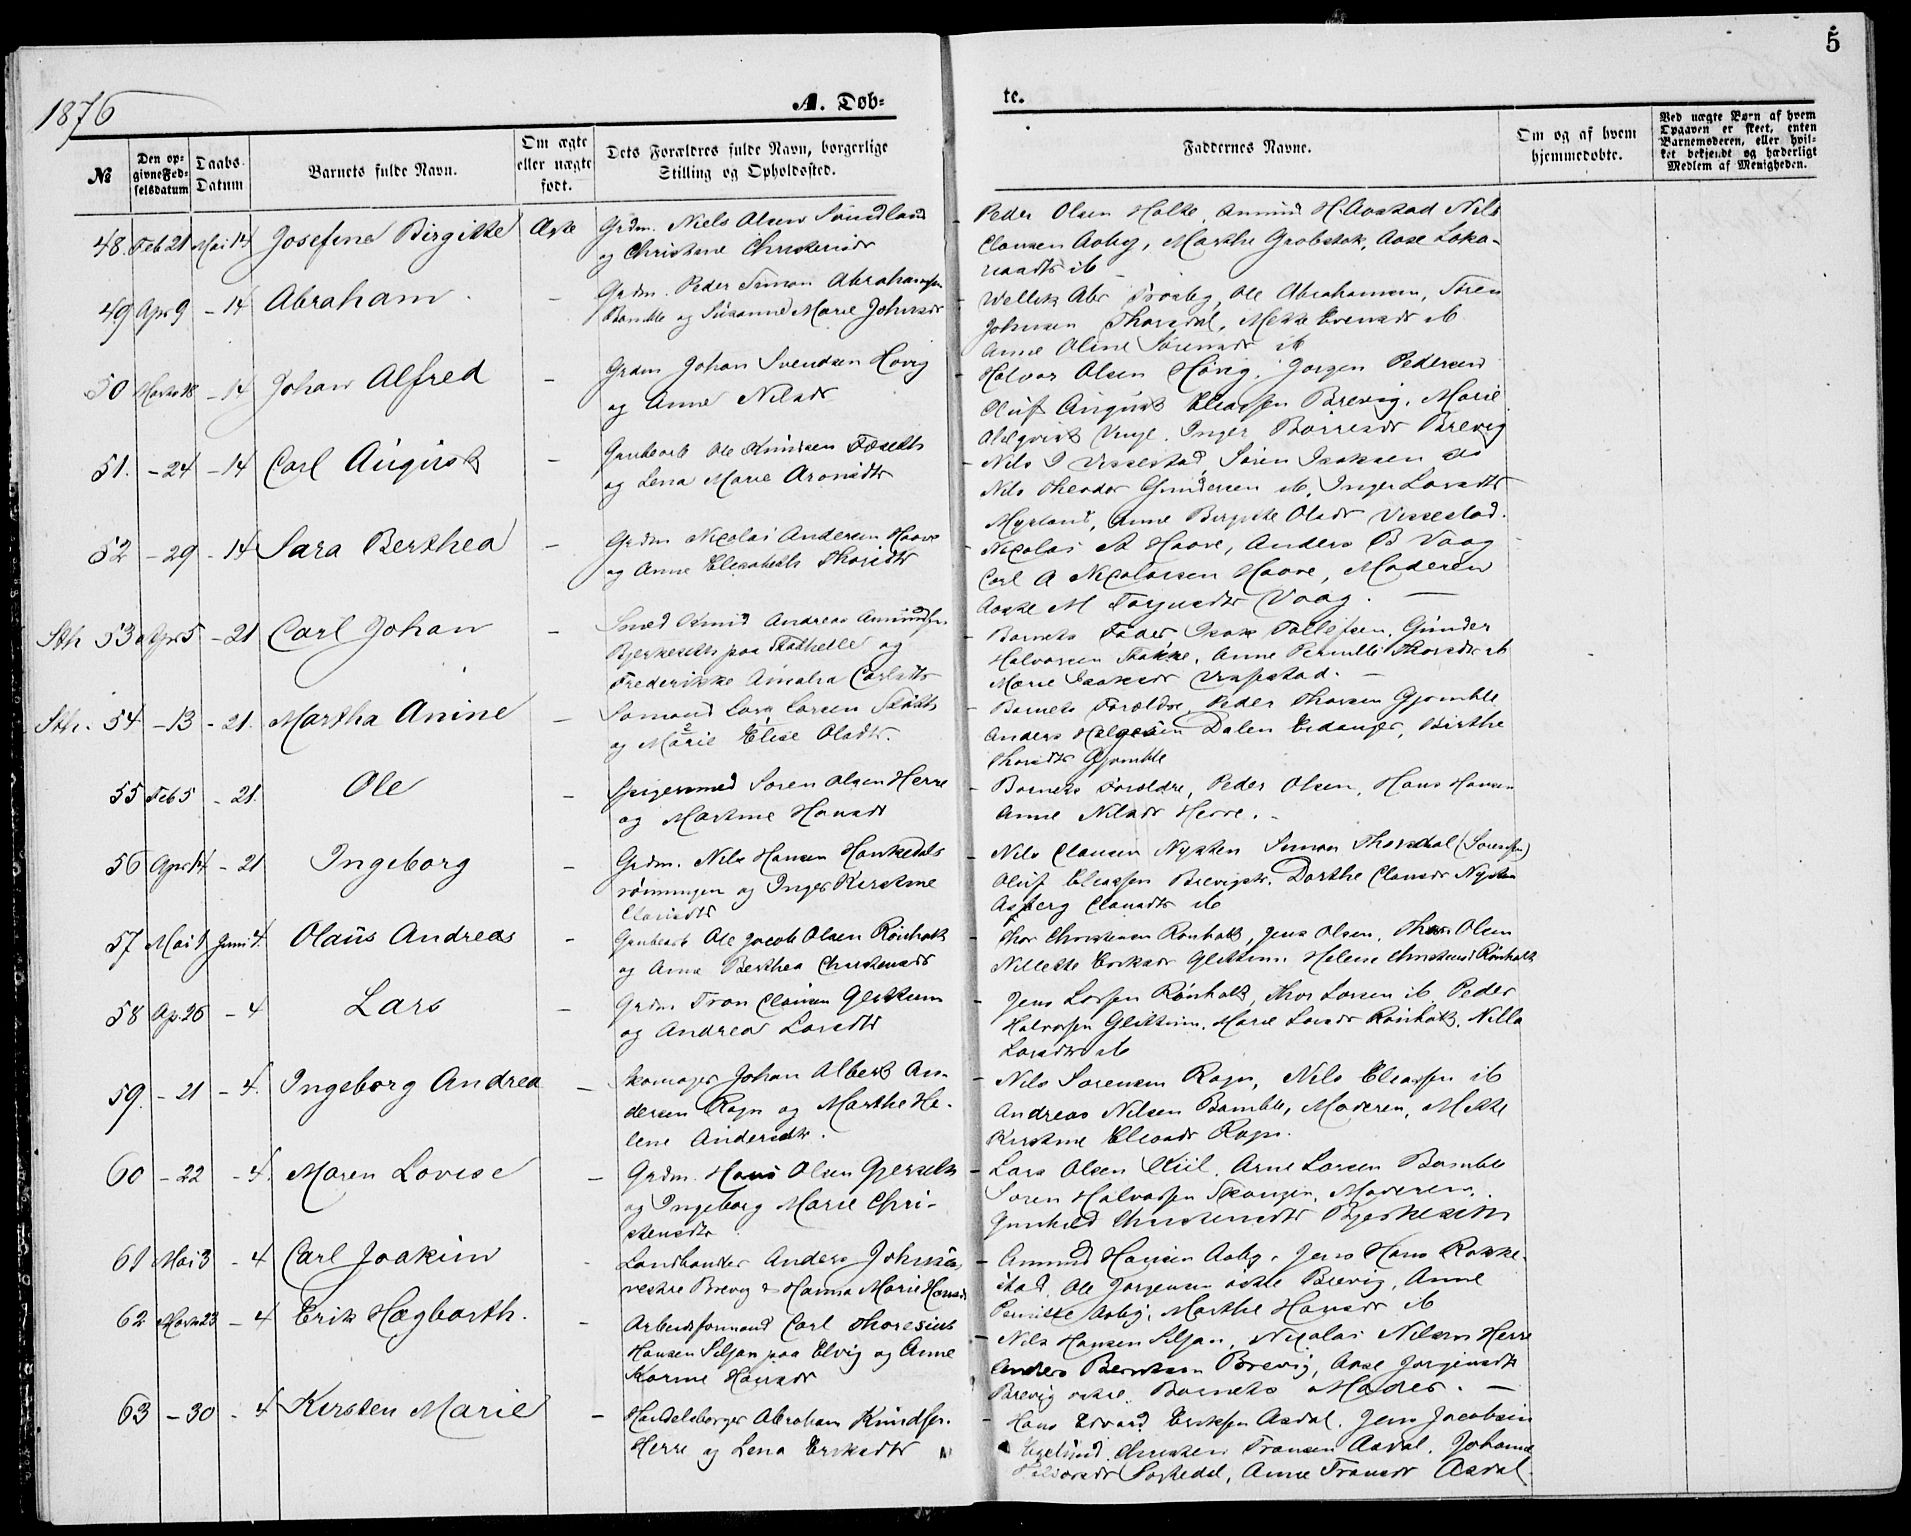 5
1876
A. Døb-
te.
№
Den op-
givne Fød-
selsdatum
Daabs-
Datum
Barnets fulde Navn.
Om ægte
eller uægte
født.
Dets Forældres fulde Navn, borgerlige
Stilling og Opholdssted.
Faddernes Navne.
Om og af hvem
hjemmedøbte.
Ved uægte Børn af hvem
Opgaven er skeet, enten
Barnemoderen, eller hvil-
ket bekjendt og hæderligt
Medlem af Menigheden.
48. Feb 21 Mai 14 Josefine Birgitte Ægte Grdm. Niels Olsen Svindland
og Christine Christensdr
Peder Olsen Holte, Amund H. Aavstad Nils
Clausen Aaby, Marthe Grobstok, Aase Loka-
raadt ib
49 Apr 9 - 14 Abraham. - Grdm. Peder Simon Abrahamsen
Bamble og Susanne Marie Johnsdr
Abr Trosby, Ole Abrahamsen, Søren
Johnsen Thorsdal, Mette Evensdr ib
Anne Oline Sørensdr ib
50 Marts 18 - 14 Johan Alfred - Grdm Johan Svendsen Hovig
og Anne Nilsdr
Halvor Olsen Høvig, Jørgen Pedersen
Oluf August Eliassen Brevig, Marie
Inger Børresdr Brevig
51. - 24 - 14 Carl August - Ole Knudsen Foseth
og Lena Marie Aronsdtr
Nils P Vissestad, Søren Isaksen do
Nils Theodor Gundersen ib, Inger Larsdtr
Myrland, Anne Birgitte Olsdr Vissestad.
52 - 29 - 14 Sara Berthea - Grdm Nicolai Andersen Haave
og Anne Elisabeth Thorsdtr
Nicolai A Haave, Anders B Vaag
Carl A Nicolaisen Haave, Moderen
Aaste M Torjusdtr Vaag. -
Sth 53 Apr 5 - 21 Carl Johan - Smed Knud Andreas Amundsen
Bjerkeseth paa Stathelle og
Frederikke Amalia Carlsdtr
Barnets Fader, Isak Tollefsen, Gunder
Halvorsen Stokke, Anne Pernille Thorsdr ib
Marie Isaksdr Vissestad. -
Sth. 54 - 13 - 21. Martha Anine - Sømand Lars Larsen Stath
og Marie Elise Olsdtr.
Barnets Forældre, Peder Thorsen Gjømble
Anders Halgesen Dalen Eidanger, Birthe
Thorsdtr Gjømble
55 Feb 5 - 21. Ole - Spigersmed Søren Olsen Herre
og Martine Hansdr
Barnets Forældre, Peder Olsen, Hans Hansen
Anne Nilsdr Herre. -
56 Apr 14 - 21 Ingeborg - Grdm. Nils Hansen Hankedals
rønningen og Inger Kirstine
Clausdtr
Nils Clausen Nysten Simon Thorsdal (Sørensen)
Oluf Eliassen Brevigstr. Dorthe Clausdr Nysten
Asberg Clausdtr ib
57 Mai 1 Juni 4. Olaus Andreas - Ole Jacob Olsen Rønholt
og Anne Berthea Christensdr
Thor Christensen Rønholt, Jens Olsen, Thor Olsen
Nillette Eriksdr Glittum, Helene Christensd Rønholt
58 Ap. 26 - 4 Lars - Grdm Tron Clausen Glittum
og Andrea Larsdtr
Jens Larsen Rønholt, Thor Larsen ib, Peder
Halvorsen Glittum, Marie Larsdr Rønholt, Nilla
Larsdtr ib
59. - 21 - 4. Ingeborg Andrea - Skomager Johan Albert An-
dersen Rogn og Marthe He-
lene Andersdtr.
Nils Sørensen Rogn, Nils Eliassen ib
Andreas Nilsen Bamble, Moderen, Mette
Kirstine Eliasdr Rogn.
60 - 22 - 4. Maren Lovise - Grdm. Hans Olsen Gjerseth
og Ingeborg Marie Chri-
stensdtr
Lars Olsen Kiil, Arne Larsen Bamble
Søren Halvorsen Skougen, Moderen,
Gunhild Christensdtr Bjerkeseth
61 Mai 3 - 4 Carl Joakim - Landhandler Anders Johnsen
vestre Brevig & Hanna Marie Hansdr
Amund Hansen Aaby, Jens Hans Rakke-
stad, Ole Jørgensen østre Brevig, Anne
Pernille Aaby, Marthe Hansdr ib
62 Marts 23 - 4 Erik Hagbarth. - Arbeidsformand Carl Thoresius
Hansen Siljan paa Elvig og Anne
Karine Hansdr
Nils Hansen Siljan, Nicolai Nilsen Herre
Anders Berntsen Brevig, Aase Jørgensdtr
Brevig østre, Barnets Moder. -
63 - 30 - 4 Kirsten Marie - Handelsborger Abraham Knudsen
Herre og Lena Eriksdtr
Hans Edvard Eriksen Asdal, Jens Jacobsen
Christen Transen Asdal, Johanne
Halvorsdr Anne Transdr Asdal.